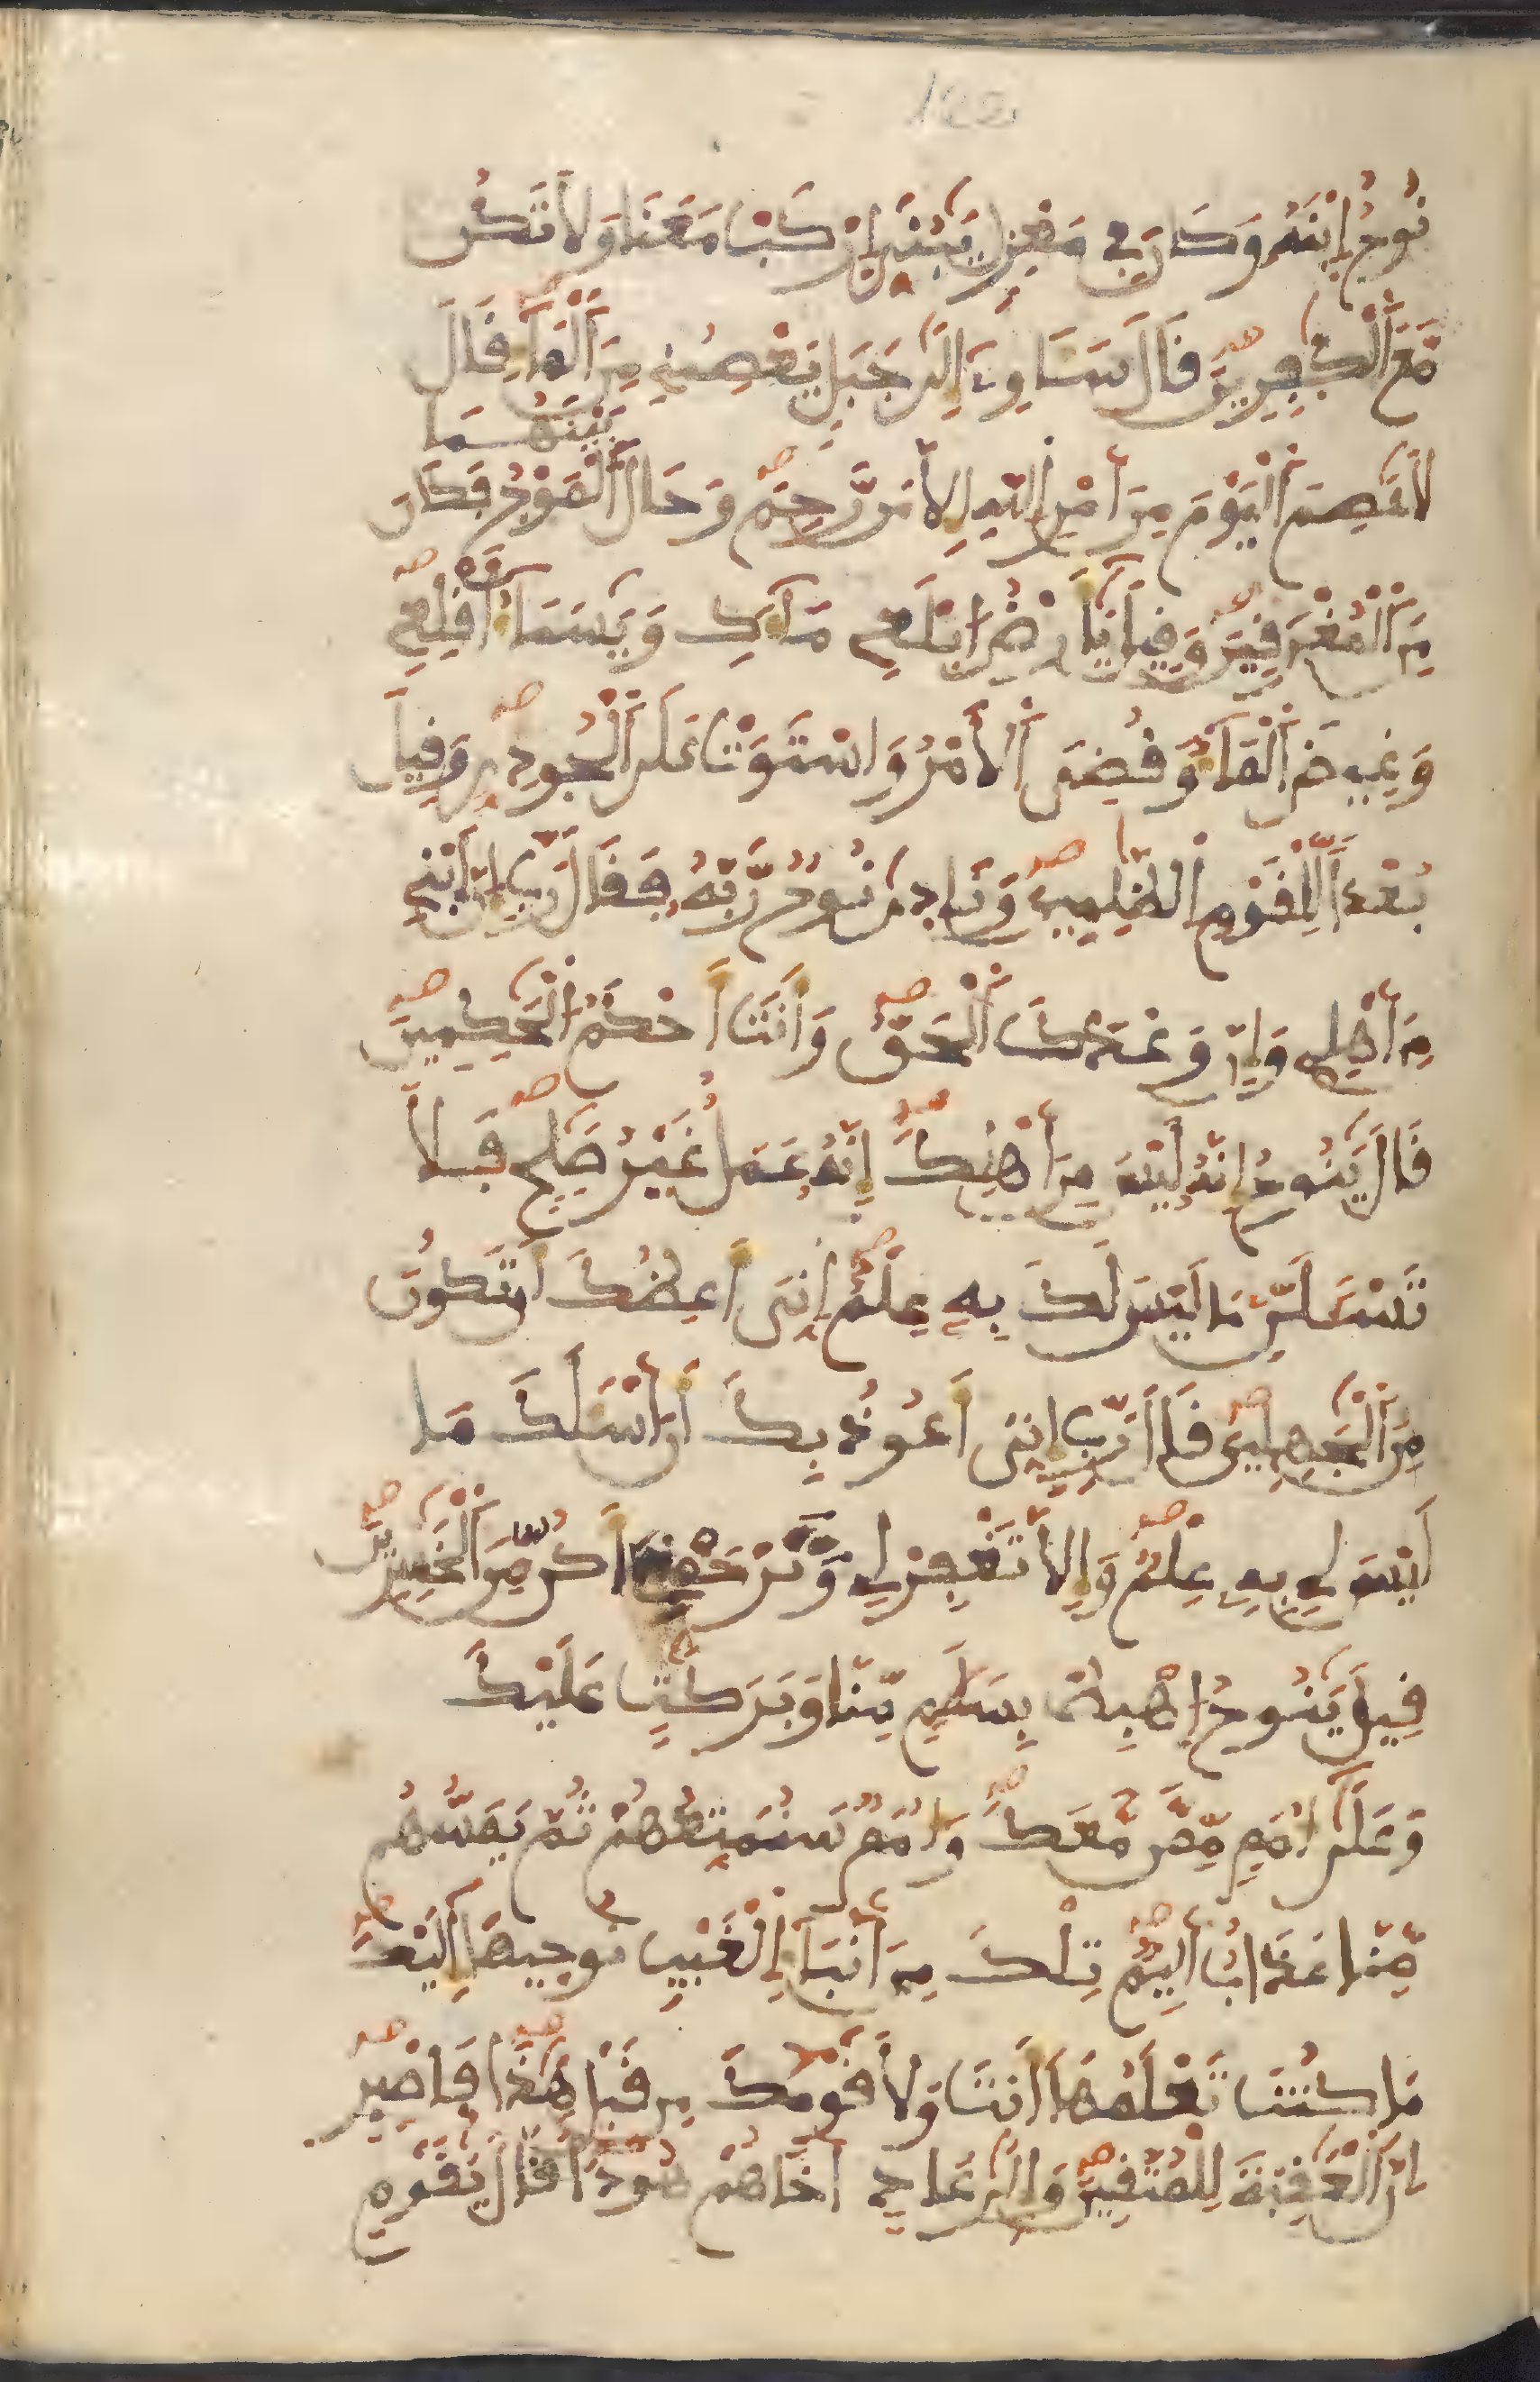 نُوحٌ اِبْنَهُ وَكَانَ فِي مَعْزِلٍ يَٰبُنَيِّ اِرْكَب مَّعَنَا وَلَا تَكُن
مَّعَ اَلْكٰفِرِينَ قَالَ سَـَٔاوِے إِلَىٰ جَبَلٍ يَعْصِمُنِے مِنَ اَلْمَآءِ قَالَ
لَا عَاصِمَ اَلْيَوْمَ مِنَ اَمْرِ اِللَّهِ إِلَّا مَن رَّحِمَ وَحَالَ بَيْنَهُمَا اَلْمَوْجُ فَكَانَ
مِنَ اَلْمُغْرَقِينَ وَقِيلَ يَٰٓأَرْضُ اُ۪بْلَعِے مَآءَكِ وَيَٰسَمَآءُ اَقْلِعِے
وَغِيضَ اَلْمَآءُ وَقُضِيَ اَلَامْرُ وَاسْتَوَتْ عَلَى اَلْجُودِيِّ وَقِيلَ
بُعْداً لِّلْقَوْمِ اِلظَّٰلِمِينَ وَنَادٜىٰ نُوحٌ رَّبَّهُ فَقَالَ رَبِّ إِنَّ اَبْنِے
مِنَ اَهْلِے وَإِنَّ وَعْدَكَ اَلْحَقُّ وَأَنتَ أَحْكَمُ اُلْحَٰكِمِينَ
قَالَ يَٰنُوحُ إِنَّهُ لَيْسَ مِنَ اَهْلِكَ إِنَّهُ عَمَلٌ غَيْرُ صَٰلِحٍ فَلَا
تَسْـَٔلَنِّ مَا لَيْسَ لَكَ بِهِ عِلْمٌ اِنِّيَ أَعِظُكَ أَن تَكُونَ
مِنَ اَلْجَٰهِلِينَ قَالَ رَبِّ إِنِّيَ أَعُوذُ بِكَ أَنَ اَسْـَٔلَكَ مَا
لَيْسَ لِے بِهِ عِلْمٌ وَإِلَّا تَغْفِرْ لِے وَتَرْحَمْنِے أَكُن مِّنَ اَلْخَٰسِرِينَ
قِيلَ يَٰنُوحُ اُ۪هْبِطْ بِسَلَٰمٍ مِّنَّا وَبَرَكَٰتٍ عَلَيْكَ
وَعَلَىٰٓ أُمَمٍ مِّمَّن مَّعَكَ وَأُمَمٌ سَنُمَتِّعُهُمْ ثُمَّ يَمَسُّهُم
مِّنَّا عَذَابٌ اَلِيمٌ تِلْكَ مِنَ اَنۢبَآءِ اِلْغَيْبِ نُوحِيهَآ إِلَيْكَ
مَا كُنتَ تَعْلَمُهَآ أَنتَ وَلَا قَوْمُكَ مِن قَبْلِ هَٰذَا فَاصْبِرِ
اِنَّ اَلْعَٰقِبَةَ لِلْمُتَّقِينَ وَإِلَىٰ عَادٍ اَخَاهُمْ هُوداً قَالَ يَٰقَوْمِ